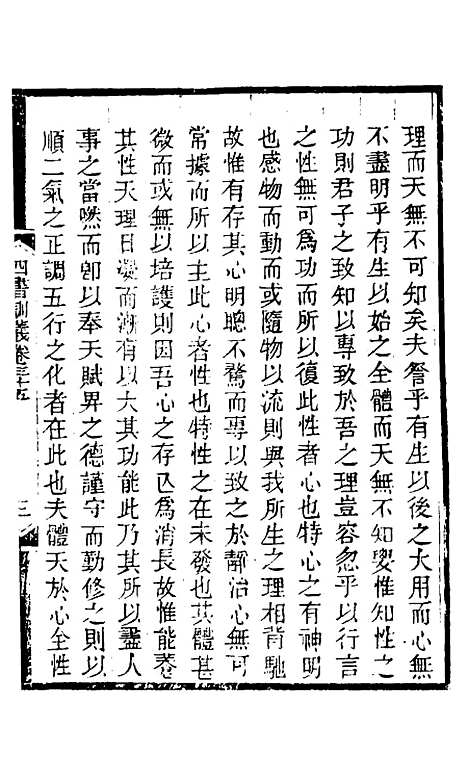 理而天無不可知矣夫詧乎有生以後之大用而心無
不盡明乎有生以始之全體而天無不知要惟知性之
功則君子之致知以專致於吾之理豈容忽乎以行言
之性無可爲功而所以復此性者心也特心之有神明
也感物而動而或隨物以流則與我所生之理相背馳
故惟有存其心明聰不騖而專以致之於靜治心無可
常據而所以主此心者性也特性之在未發也其體甚
微而或無以培護則因吾心之存以爲消長故惟能養
其性天理日凝而漸有以大其功能此乃其所以盡人
事之當然而卽以奉天賦畀之德謹守而勤修之則以
順二氣之正調五行之化者在此也夫體天於心全性
四書訓義卷三十五
三